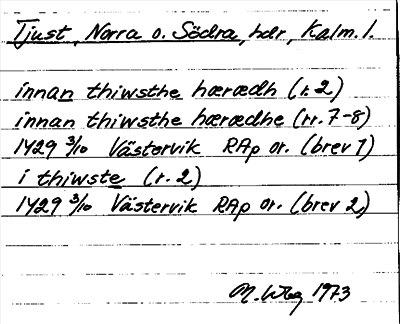 Tjust, Norra o. Södra, hdr, Kalm. l.
innan thiwsthe hærædh (r. 2)
innan thiwsthe hærædhe (rr. 7-8)
1429 3/10 Västervik RAp or. (brev 1)
i thiwste (r. 2)
1429 3/10 Västervik RAp or. (brev 2)
M. 1973